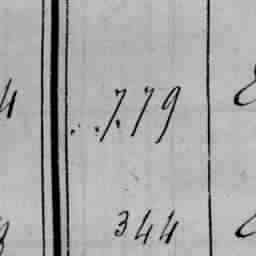 779
344